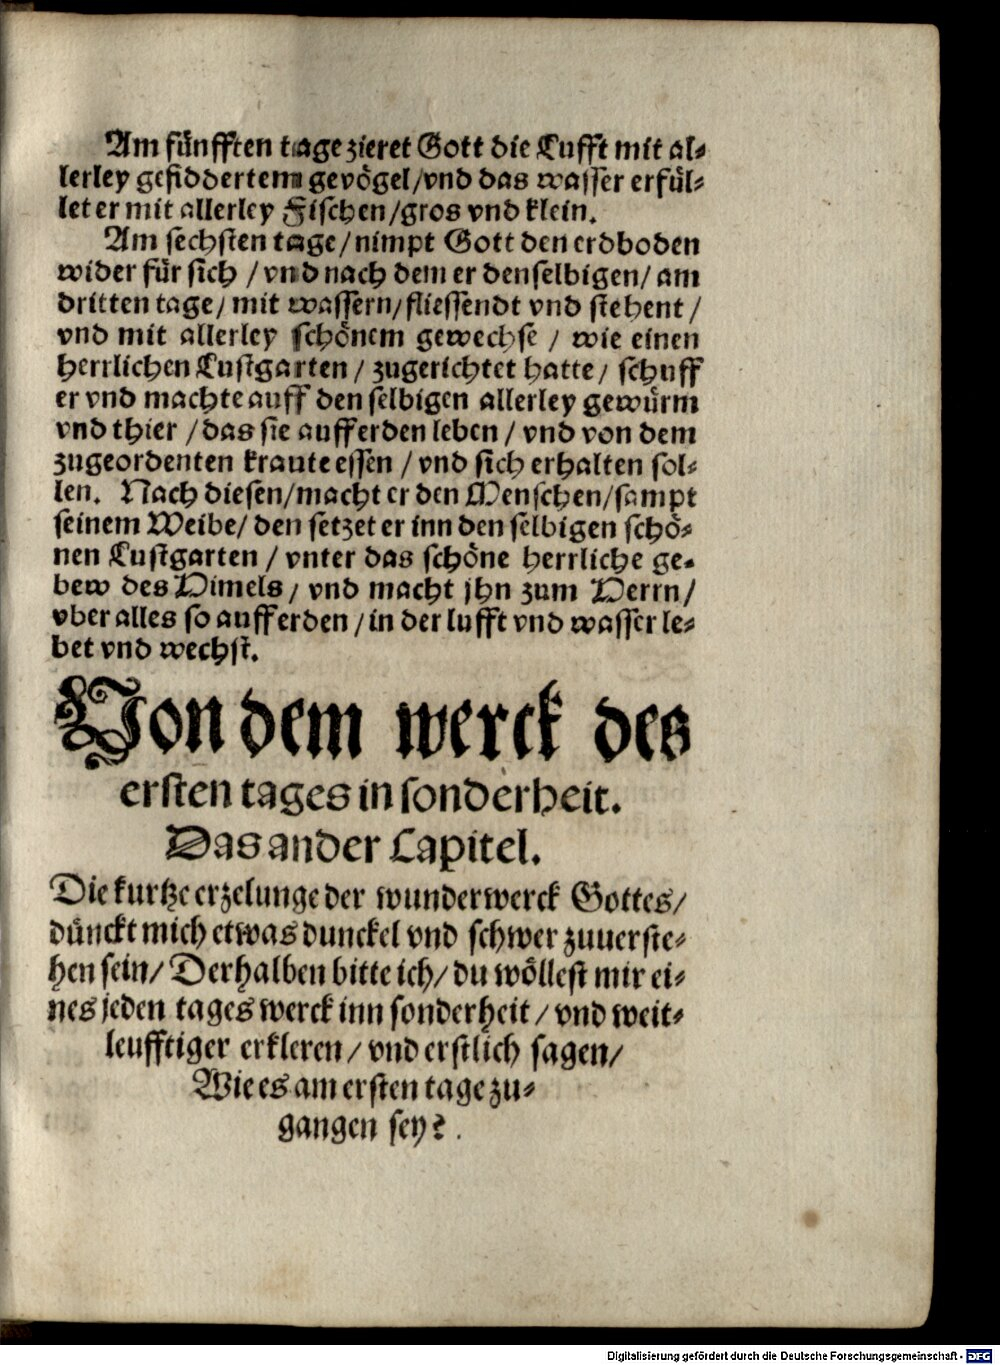 Am fünfften tage zieret Gott die Lufft mit al⸗
lerley gefiddertem gevögel/vnd das wasser erfül⸗
let er mit allerley Fischen/gros vnd klein.
Am sechsten tage/nimpt Gott den erdboden
wider für sich/vnd nach dem er denselbigen/am
dritten tage/mit wassern/fliessendt vnd stehent/
vnd mit allerley schönem gewechse/wie einen
herrlichen Lustgarten/zugerichtet hatte/schuff
er vnd machte auff den selbigen allerley gewürm
vnd thier/das sie auff erden leben/vnd von dem
zugeordenten kraute essen/vnd sich erhalten sol⸗
len. Nach diesen/macht er den Menschen/sampt
seinem Weibe/den setzet er inn den selbigen schö⸗
nen Lustgarten/vnter das schöne herrliche ge⸗
bew des Himels/vnd macht jhn zum Herrn/
vber alles so auff erden/in der lufft vnd wasser le⸗
bet vnd wechst.
Von dem werck des
ersten tages in sonderheit.
Das ander Capitel.
Die kurtze erzelunge der wunderwerck Gottes/
dünckt mich etwas dunckel vnd schwer zuuerste⸗
hen sein/Derhalben bitte ich/du wöllest mir ei⸗
nes jeden tages werck inn sonderheit/vnd weit⸗
leufftiger erkleren/vnd erstlich sagen/
Wie es am ersten tage zu⸗
gangen sey?
Digitalisierung gefördert durch die Deutsche Forschungsgemeinschaft - DFG